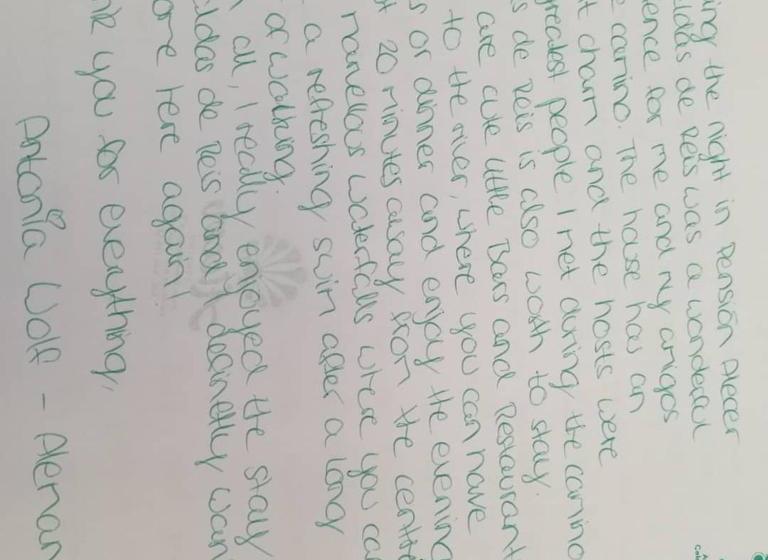 ing the night in Pensión Plecer
ldas de Reis was a wonderful
ience for me and my amigos
e camino. The house has an
t charm and the hosts were
greatest people I met during the camino
s de Reis is also worth to stay.
are cute little Bars and Restaurant
to the river, where you can have
s or dinner and enjoy the evening
t 20 minutes away from the centre
marvellous waterfalls where you ca
a refreshing swim after a long
of walking.
n all, I really enjoyed the stay
ldas de Reis and I definetly wan
ome here again!
nk you for everything,
Antonia Wolf - Aleman